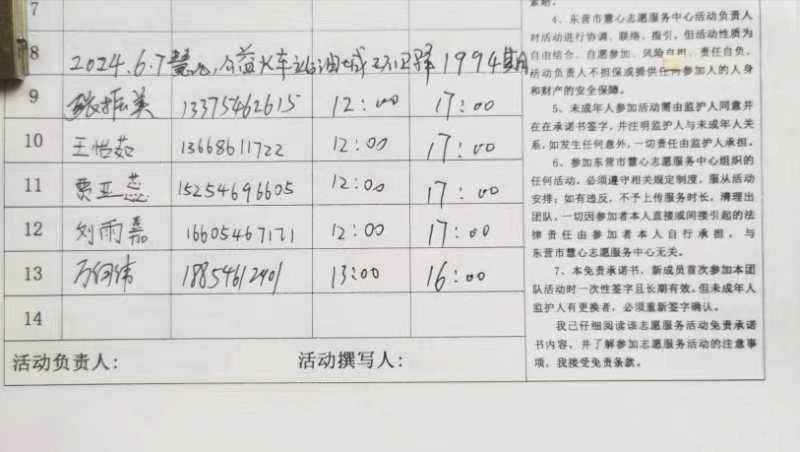 7
8 2024.6.7 慧心公益火车站油城 1994期
9 张振美 13375462615 12:00 17:00
10 王怡茹 13668611722 12:00 17:00
11 贾亚蕊 15254696605 12:00 17:00
12 刘雨嘉 16605467171 12:00 17:00
13 18854612901 13:00 16:00
14
活动负责人： 活动撰写人：
4、东营市慧心志愿服务中心活动负责人
对活动进行协调、联络、指引，但活动性质为
自由结合、自愿参加、风险自担、责任自负，
活动负责人不担保或提供任何参加人的人身
和财产的安全保障。
5、未成年人参加活动需由监护人同意并
在在承诺书签字，并注明监护人与未成年人关
系，如发生任何意外，一切责任由监护人承担。
6、参加东营市慧心志愿服务中心组织的
任何活动，必须遵守相关规定制度，服从活动
安排；如有违反，不予上传服务时长，清理出
团队，一切因参加者本人直接或间接引起的法
律责任由参加者本人自行承担，与
东营市慧心志愿服务中心无关。
7、本免责承诺书，新成员首次参加本团
队活动时一次性签字且长期有效，但未成年人
监护人有更换者，必须重新签字确认。
我已仔细阅读该志愿服务活动免责承诺
书内容，并了解参加志愿服务活动的注意事
项，我接受免责条款。